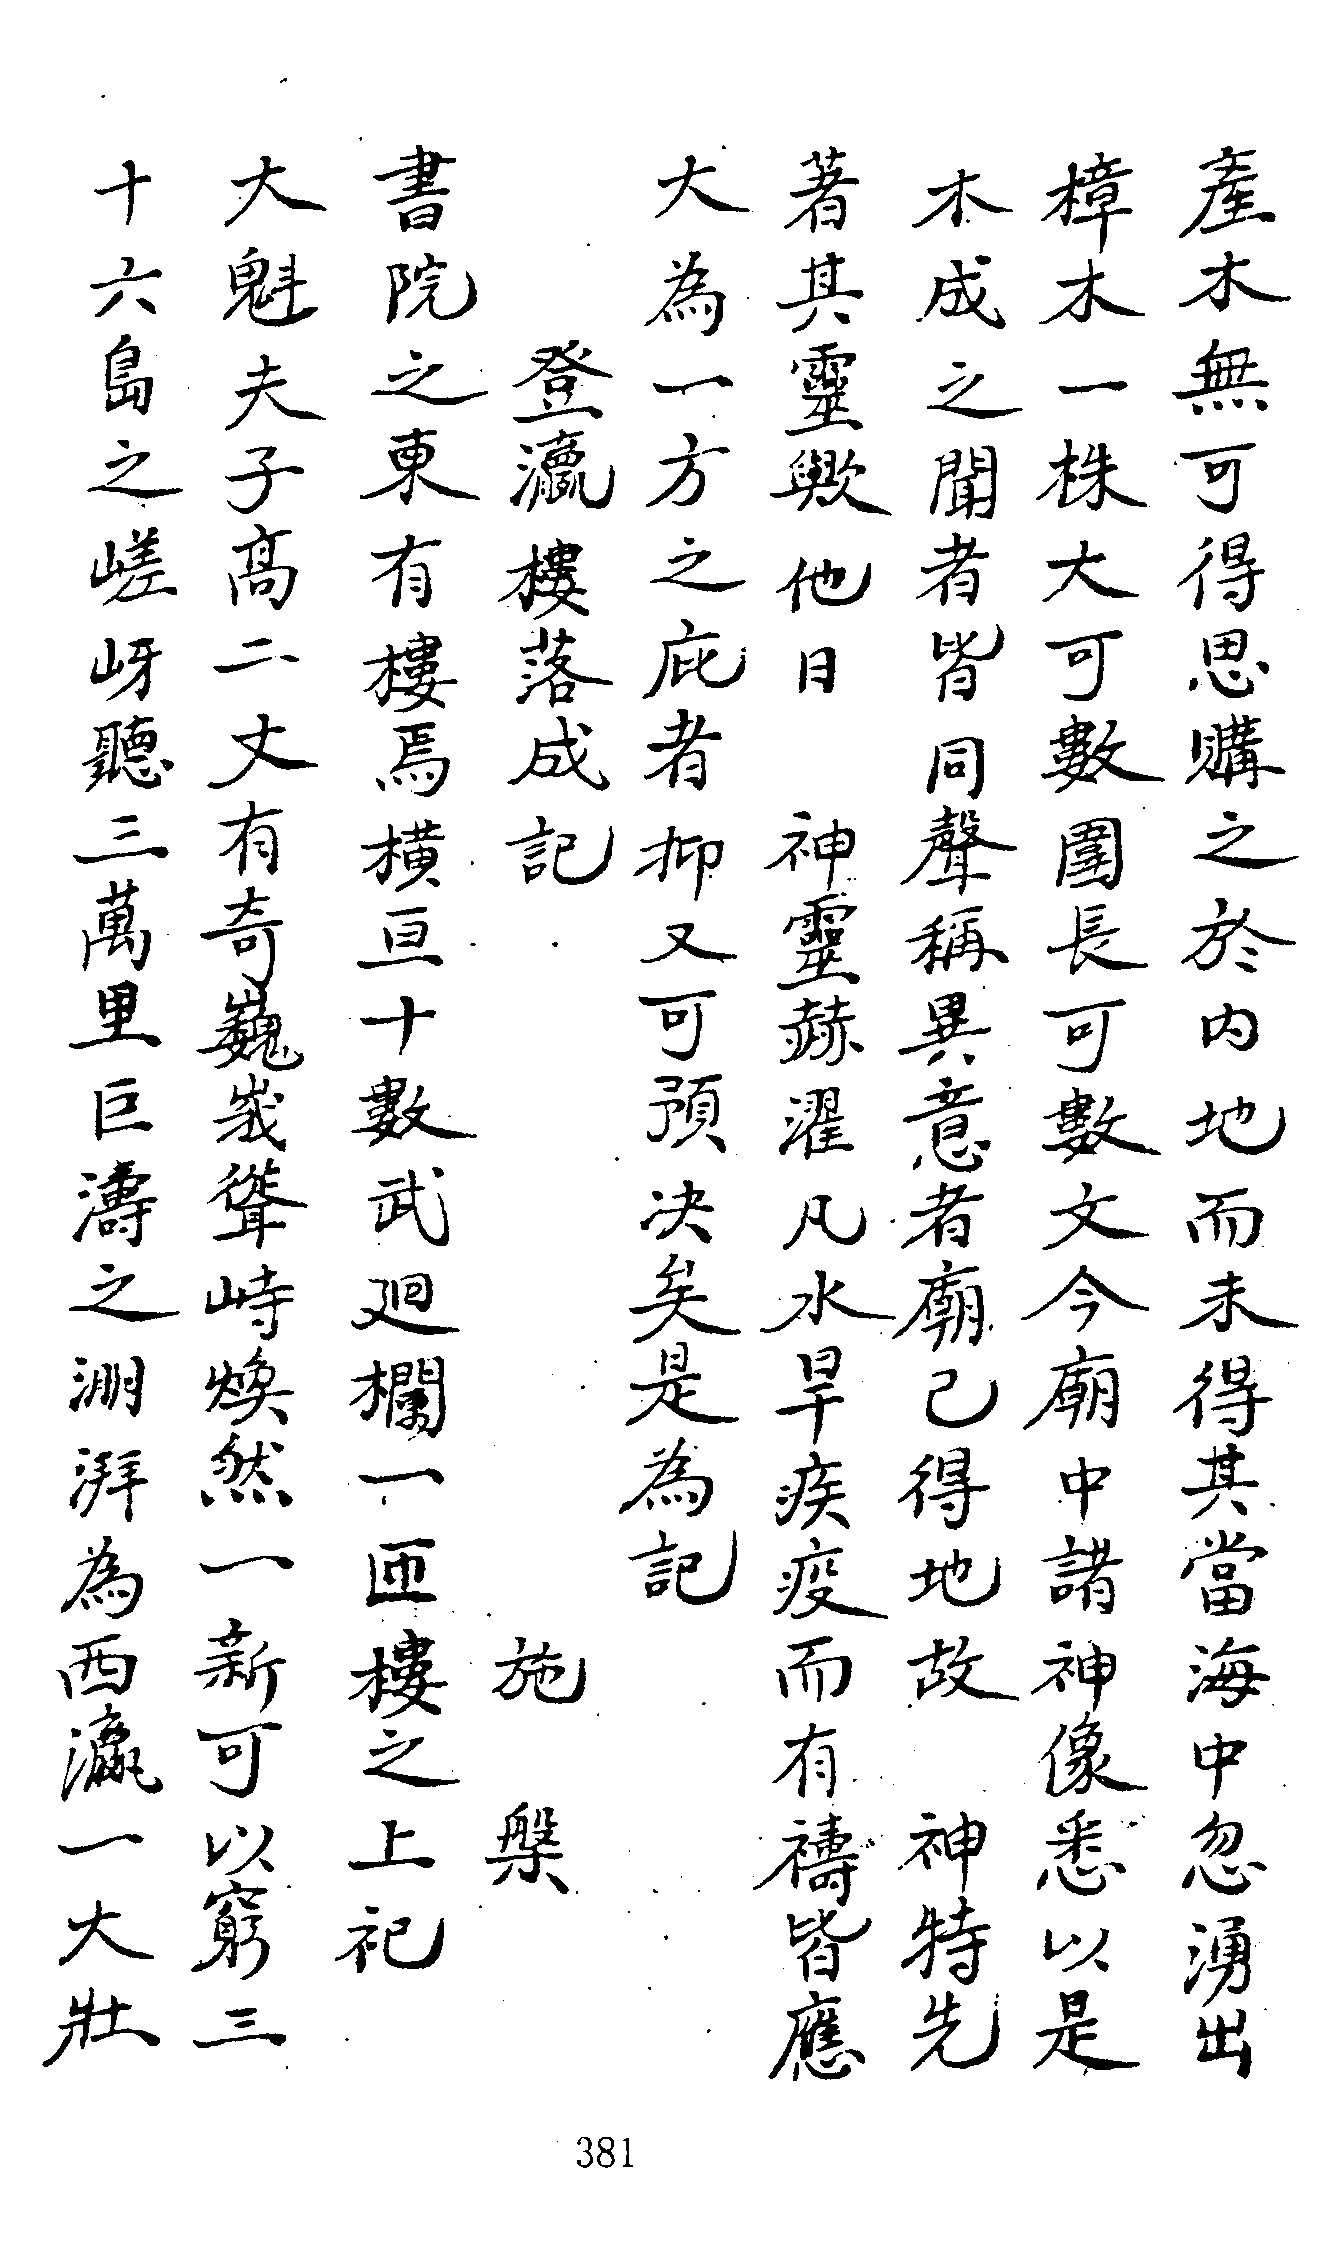 產木無可得思購之於內地而未得其當海中忽湧出
樟木一株大可數圍長可數文今廟中諸神像悉以是
木成之聞者皆同聲稱異意者廟已得地故　神特先
著其靈歟他日　神靈赫濯凡水旱疾疫而有禱皆應
大為一方之庇者抑又可預决矣是為記
登瀛樓落成記　施槃
書院之東有樓焉橫亘十數武廻欄一匝樓之上祀
大魁夫子高二丈有奇巍峩聳峙煥然一新可以窮三
十六島之嵯岈聽三萬里巨濤之淜湃為西瀛一大壯
381